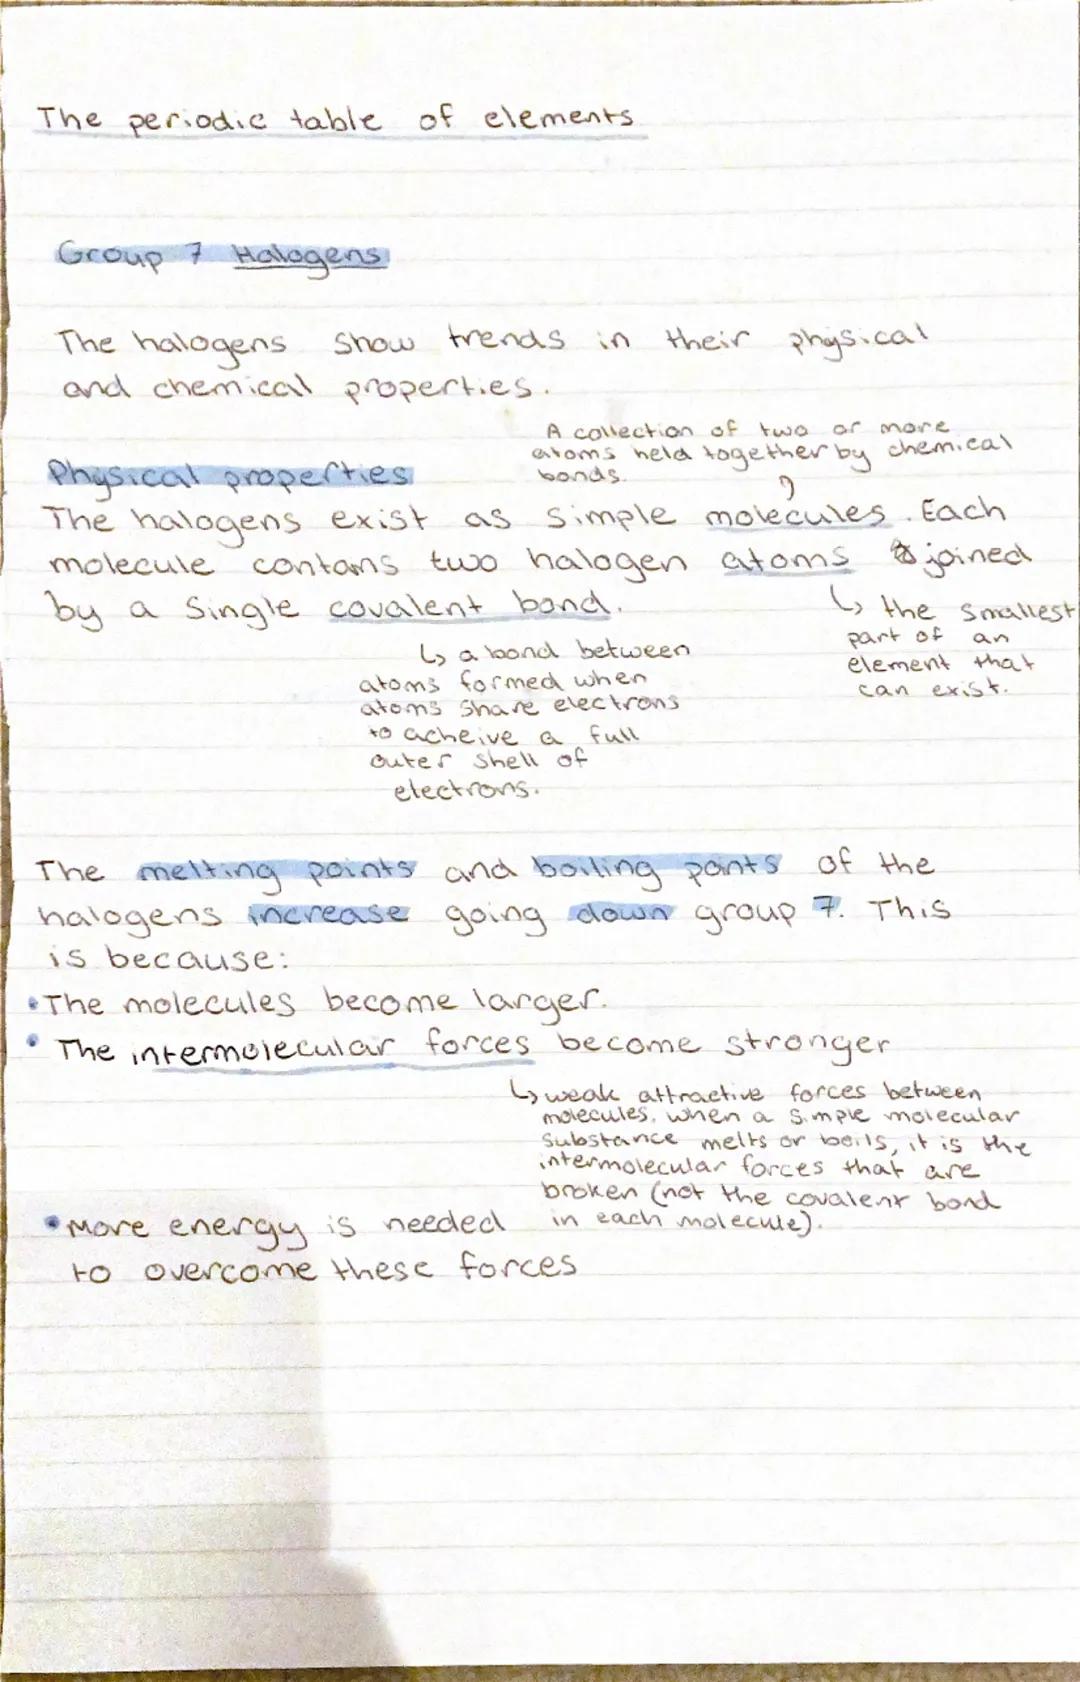 The periodic table of elements
Group 7 Halogens
The halogens show trends in their physical
and chemical properties.
A collection of two or more
atoms held together by chemical
bonds.
Physical properties
The halogens exist as simple molecules. Each
molecule contans two halogen atoms joined
by a single covalent bond.
↳ the smallest
part of an
element that
can exist.
↳ a bond between
atoms formed when
atoms share electrons
to acheive a full
outer shell of
electrons.
The melting points and boiling points of the
halogens increase going down group 7. This
is because:
• The molecules become larger.
• The intermolecular forces become stronger
↳ weak attractive forces between
molecules. when a simple molecular
substance melts or boils, it is the
intermolecular forces that are
broken (not the covalent bond
in each molecule).
• More energy is needed
to overcome these forces